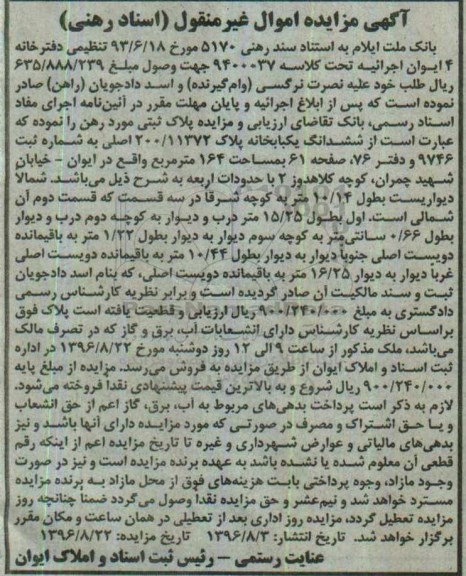 آگهی مزایده اموال غیرمنقول (اسناد رهنی)
بانک ملت ایلام به استناد سند رهنی ۵۱۷۰ مورخ ۹۳/۶/۱۸ تنظیمی دفترخانه
۴ ایوان اجرائیه تحت کلاسه ۹۴۰۰۰۳۷ جهت وصول مبلغ ۶۳۵/۸۸۸/۲۳۹
ریال طلب خود علیه نصرت نرگسی (وام‌گیرنده) و اسد دادجویان (راهن) صادر
نموده است که پس از ابلاغ اجرائیه و پایان مهلت مقرر در آئین‌نامه اجرای مفاد
اسناد رسمی، بانک تقاضای ارزیابی و مزایده پلاک ثبتی مورد رهن را نموده که
عبارت است از ششدانگ یکبابخانه پلاک ۲۰۰/۱۱۳۷۲ اصلی به شماره ثبت
۹۷۴۶ و دفتر ۷۶، صفحه ۶۱ بمساحت ۱۶۴ مترمربع واقع در ایوان - خیابان
شهید چمران، کوچه کلاهدوز ۲ با حدودات اربعه به شرح ذیل می‌باشد. شمالاً
دیواریست بطول ۱۰/۱۴ متر به کوچه شرقاً در سه قسمت که قسمت دوم آن
شمالی است. اول بطول ۱۵/۲۵ متر درب و دیوار به کوچه دوم درب و دیوار
بطول ۰/۶۶ سانتی‌متر به کوچه سوم دیوار به دیوار بطول ۱/۲۲ متر به باقیمانده
دویست اصلی جنوباً دیوار به دیوار بطول ۱۰/۴۴ متر به باقیمانده دویست اصلی
غرباً دیوار به دیوار ۱۶/۲۵ متر به باقیمانده دویست اصلی، که بنام اسد دادجویان
ثبت و سند مالکیت آن صادر گردیده است و برابر نظریه کارشناس رسمی
دادگستری به مبلغ ۹۰۰/۲۴۰/۰۰۰ ریال ارزیابی و قطعیت یافته است پلاک فوق
براساس نظریه کارشناس دارای انشعابات آب، برق و گاز که در تصرف مالک
می‌باشد، ملک مذکور از ساعت ۹ الی ۱۲ روز دوشنبه مورخ ۱۳۹۶/۸/۲۲ در اداره
ثبت اسناد و املاک ایوان از طریق مزایده به فروش می‌رسد. مزایده از مبلغ پایه
۹۰۰/۲۴۰/۰۰۰ ریال شروع و به بالاترین قیمت پیشنهادی نقداً فروخته می‌شود.
لازم به ذکر است پرداخت بدهی‌های مربوط به آب، برق، گاز اعم از حق انشعاب
و یا حق اشتراک و مصرف در صورتی که مورد مزایده دارای آنها باشد و نیز
بدهی‌های مالیاتی و عوارض شهرداری و غیره تا تاریخ مزایده اعم از اینکه رقم
قطعی آن معلوم شده یا نشده باشد به عهده برنده مزایده است و نیز در صورت
وجود مازاد، وجوه پرداختی بابت هزینه‌های فوق از محل مازاد به برنده مزایده
مسترد خواهد شد و نیم‌عشر و حق مزایده نقداً وصول می‌گردد ضمناً چنانچه روز
مزایده تعطیل گردد، مزایده روز اداری بعد از تعطیلی در همان ساعت و مکان مقرر
برگزار خواهد شد. تاریخ انتشار: ۱۳۹۶/۸/۳ تاریخ مزایده: ۱۳۹۶/۸/۲۲
عنایت رستمی – رئیس ثبت اسناد و املاک ایوان